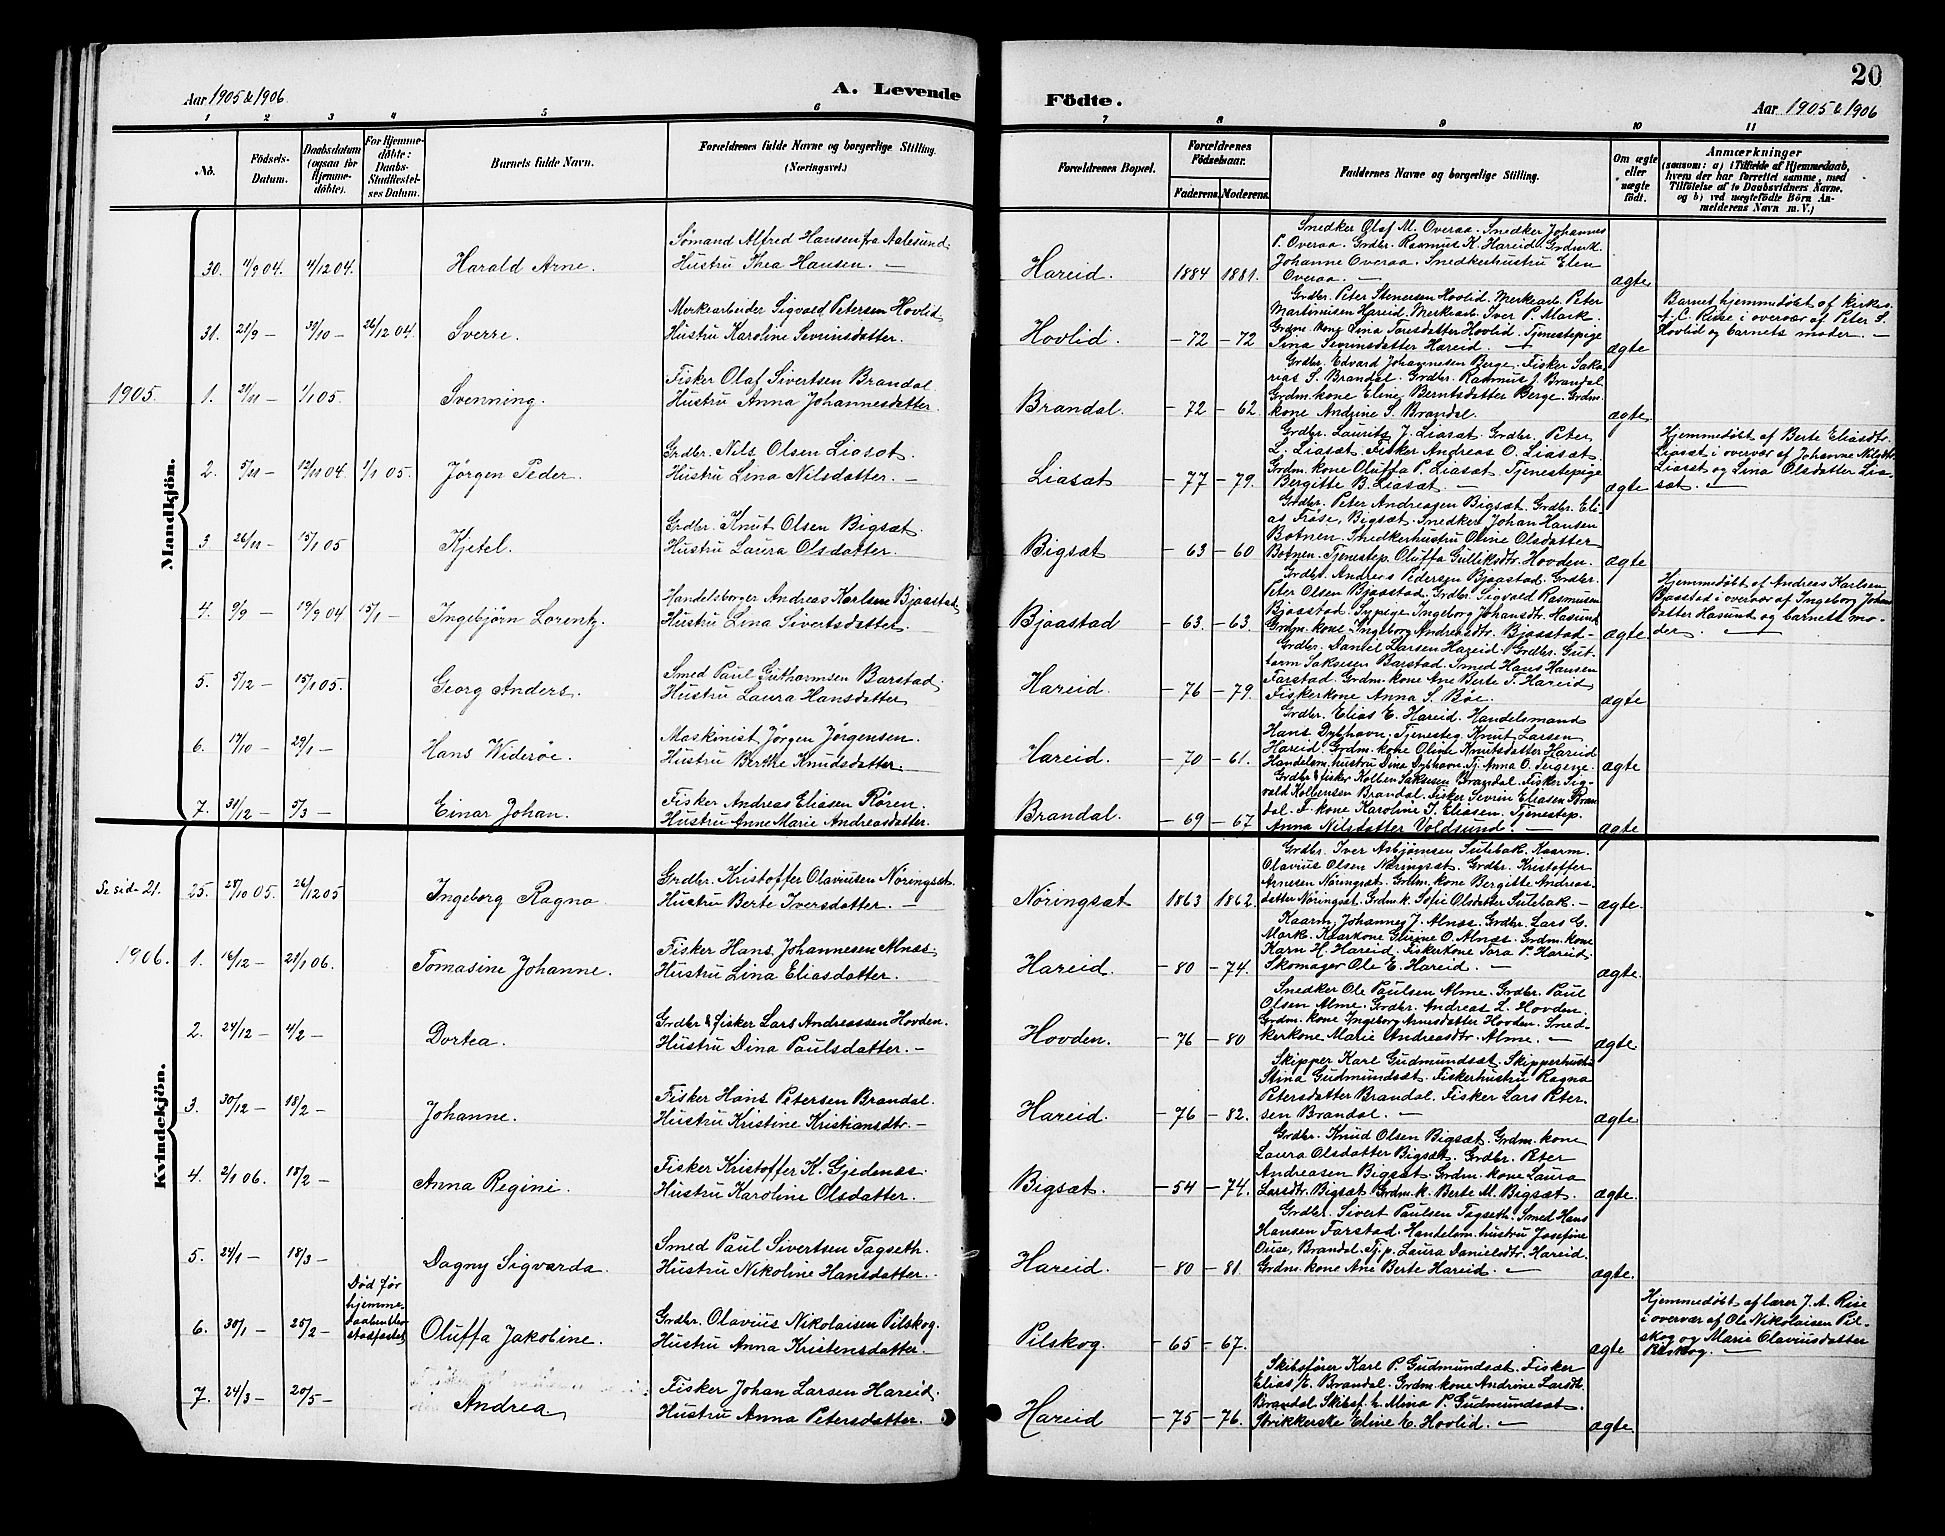 20
Aar 1905 & 1906
A. Levende
Födte.
Aar 1905 & 1906
1 2 3 4 5 6
7 8 9 10 11
No.
Födsels-
Datum.
Daabsdatum
(ogsaa for
Hjemme-
döbte).
For Hjemme-
döbte:
Daabs-
Stadfæstel-
ses Datum.
Barnets fulde Navn.
Forældrenes fulde Navne og borgerlige Stilling.
(Næringsvei.)
Forældrenes Bopæl.
Forældrenes
Födselsaar.
Faderens.
Moderens.
Faddernes Navne og borgerlige Stilling.
Om ægte
eller
uægte
født.
Anmærkninger
(saasom: a) i Tilfælde af Hjemmedaab,
hvem der har forrettet samme, med
Tilföielse af to Daabsvidners Navne.
og b) ved uægtefödte Börn An-
melderens Navn m. V.)
Mandkjön.
30. 4/9 04. 4/12 04.
Harald Arne.
Sømand Alfred Hansen fra Aalesund.
Hustru Thea Hansen. —
Hareid. 1884 1881.
Snedker Olaf M. Overaa. Snedker Johannes
P. Overaa. Grdbr. Rasmus K. Hareid. Grdm.k.
Johanne Overaa. Snedkerhustru Elen
Overaa. —
ægte
31. 21/9 — 31/10 — 26/12 04.
Sverre.
Merkearbeider Sigvald Petersen Hovlid
Hustru Karoline Sevrinsdatter.
Hovlid. — 72 — 72
Grdbr. Peter Stenersen Hovlid. Merkearb. Peter
Martinusen Hareid. Merkearb. Iver P. Mark.
Grdm. kone Lina Tomsdatter Hovlid. Tjenestepige
Sina Sevrinsdatter Hareid. —
ægte
Barnet hjemmedøbt af kirkes.
A. C. Rise i overvær af Peter S.
Hovlid og barnets moder. —
1905.
1. 21/11 — 1/1 05.
Svenning.
Fisker Olaf Sivertsen Brandal.
Hustru Anna Johannesdatter.
Brandal. — 72 — 62
Grdbr. Edvard Johannesen Berge. Fisker Saka-
rias S. Brandal. Grdbr. Rasmus J. Brandal
Grdm.kone Eline Berntsdatter Berge. Grdm.
kone Andrine S. Brandal.
ægte
2. 5/11 — 12/11 04. 1/1 05.
Jørgen Peder.
Grdbr. Nils Olsen Liasæt.
Hustru Lina Nilsdatter. —
Liasæt — 77 — 79.
Grdbr. Laurits J. Liasæt. Grdbr. Peter
L. Liasæt. Fisker Andreas O. Liasæt.
Grdm. kone Oluffa P. Liasæt. Tjenestepige
Bergitte B. Liasæt. —
ægte
Hjemmedøbt af Berte Eliasdtr.
Liasæt i overvær af Johanne Nilsdtr.
Liasæt og Lina Olsdatter Lia-
sæt. —
3 26/11 — 15/1 05
Kjetel.
Grdbr. Knut Olsen Bigsæt.
Hustru Laura Olsdatter.
Bigsæt — 63 — 60
Grdbr. Peter Andreasen Bigsæt. Grdbr. Eli-
as Frøse, Bigsæt. Snedker Johan Hansen
Botnen. Snedkerhustru Oline Olsdatter
Botnen. Tjenestep. Oluffa Gulliksdtr. Hovden.
ægte
4. 9/9 — 19/9 04 15/1 —
Ingebjørn Lorentz.
Handelsborger Andreas Karlsen Bjaastad
Hustru Lina Sivertsdatter.
Bjaastad — 63. — 63.
Grdbr. Andreas Pedersen Bjaastad. Grdbr.
Peter Olsen Bjaastad. Grdbr. Sigvald Rasmusen
Bjaastad. Sypige Ingeborg Johansdtr. Hasund
Grdm. kone Ingeborg Andreasdtr. Bjaastad—
ægte
Hjemmedøbt af Andreas Karlsen
Bjaastad i overvær af Ingeborg Johans-
datter Hasund og barnets mo-
der. —
5. 5/12 — 15/1 05.
Georg Anders.
Smed Paul Guthormsen Barstad.
Hustru Laura Hansdatter
Hareid. — 76 — 79.
Grdbr. Daniel Larsen Hareid. Grdbr. Gut-
torm Saksesen Barstad. Smed Hans Hansen
Farstad. Grdm. kone Ane Berte T. Hareid
Fiskerkone Anna S. Bøe.
ægte
6. 17/10 — 29/1 —
Hans Widerøe.
Maskinist Jørgen Jørgensen.
Hustru Berthe Knudsdatter.
Hareid. — 70 — 61.
Grdbr. Elias E. Hareid. Handelsmand
Hans Dybhavn. Tjenesteg. Knut Larsen
Hareid. Grdm. kone Oline Knutsdatter Hareid
Handelsm. hustru Dina Dybhavn. Tj. Anna O.
ægte
7. 31/12 — 5/3 —
Einar Johan.
Fisker Andreas Eliasen Røren.
Hustru Anne Marie Andreasdatter.
Brandal. — 69 — 67
Grdbr. & fisker Kolben Saksesen Brandal. Fisker Sig-
vald Kolbensen Brandal. Fisker Sevrin Eliasen Bran-
dal. F. kone Karoline J. Eliasen. Tjenestep.
Anna Nilsdatter Voldsund. —
ægte
Kvindekjön.
Se side 21.
25. 28/10 05. 26/12 05
Ingeborg Ragna.
Grdbr. Kristoffer Olaviusen Nöringsæt.
Hustru Berte Iversdatter. —
Nöringsæt 1863 1862.
Grdbr. Iver Asbjørnsen Sulebak. Kaarm.
Olavius Olsen Nöringsæt. Grdbr. Kristoffer
Arnesen Nöringsæt. Grdm. kone Bergitte Andreas-
datter Nöringsæt. Grdm k. Sofie Olsdatter Sulebak. —
ægte.
1906.
1. 16/12 — 21/1 06.
Tomasine Johanne.
Fisker Hans Johannesen Alnæs.
Hustru Lina Eliasdatter.
Hareid. — 80 — 74.
Kaarm. Johannes J. Alnæs. Grdbr. Lars G.
Mark. Kaarkone Gurine O. Alnæs. Grdm. kone
Karn H. Hareid. Fiskerkone Tora P. Hareid
Skomager Ole E. Hareid. —
ægte
2. 24/12 — 4/2 —
Dortea.
Grdbr & fisker Lars Andreassen Hovden.
Hustru Dina Paulsdatter. —
Hovden. — 76 — 80
Snedker Ole Paulsen Alme. Grdbr. Paul
Olsen Alme. Grdbr. Andreas L. Hovden.
Grdm. kone Ingeborg Arnesdatter Hovden. Sned-
kerkone Marie Andreasdtr. Alme. —
ægte
3. 30/12 — 18/2 —
Johanne.
Fisker Hans Petersen Brandal.
Hustru Kristine Kristiansdtr. —
Hareid. — 76 — 82.
Skipper Karl Gudmundsæt. Skipperhustru
Stina Gudmundsæt. Fiskerhustru Ragna
Petersdatter Brandal. Fisker Lars Peter-
sen Brandal. —
ægte
4. 2/1 06. 18/2 —
Anna Regini.
Fisker Kristoffer K. Gjedenæs.
Hustru Karoline Olsdatter.
Bigsæt. — 54 — 74.
Grdbr. Knud Olsen Bigsæt. Grdm. kone
Laura Olsdatter Bigsæt. Grdbr. Peter
Andreasen Bigsæt. Grdm. kone Laura
Larsdtr. Bigsæt Grdm. k. Berte M. Bigsæt.
ægte.
5. 24/1 — 18/3 —
Dagny Sigvarda.
Smed Paul Sivertsen Tagseth.
Hustru Nikoline Hansdatter.
Hareid. — 80 — 81.
Grdbr. Sivert Paulsen Tagseth. Smed Hans
Hansen Farstad. Handelsm. hustru Josefine
Ouse, Brandal. Tj. p. Laura Danielsdtr. Hareid.
Grdm. kone Ane Berte Hareid. —
ægte.
6. 30/1 — 25/2 —
Død før
hjemme-
daaben blev
stadfestet
Oluffa Jakobine.
Grdbr. Olavius Nikolaisen Pilskog.
Hustru Anna Kristensdatter.
Pilskog. — 65 — 67.
ægte
Hjemmedøbt af lærer J. A. Rise
i overvær af Ole Nikolaisen Pil-
skog og Marie Olaviusdatter
Pilskog. —
7. 24/3 — 20/5 —
Andrea
Fisker Johan Larsen Hareid.
Hustru Anna Petersdatter.
Hareid — 75 — 76.
Skibsfører Karl P. Gudmundsæt. Fisker
Elias E. Brandal. Grdm. kone Andrine Larsdtr.
Brandal. Skibsf. h. Alina P. Gudmundsæt.
Strikkerske Eline E. Hovlid. —
ægte